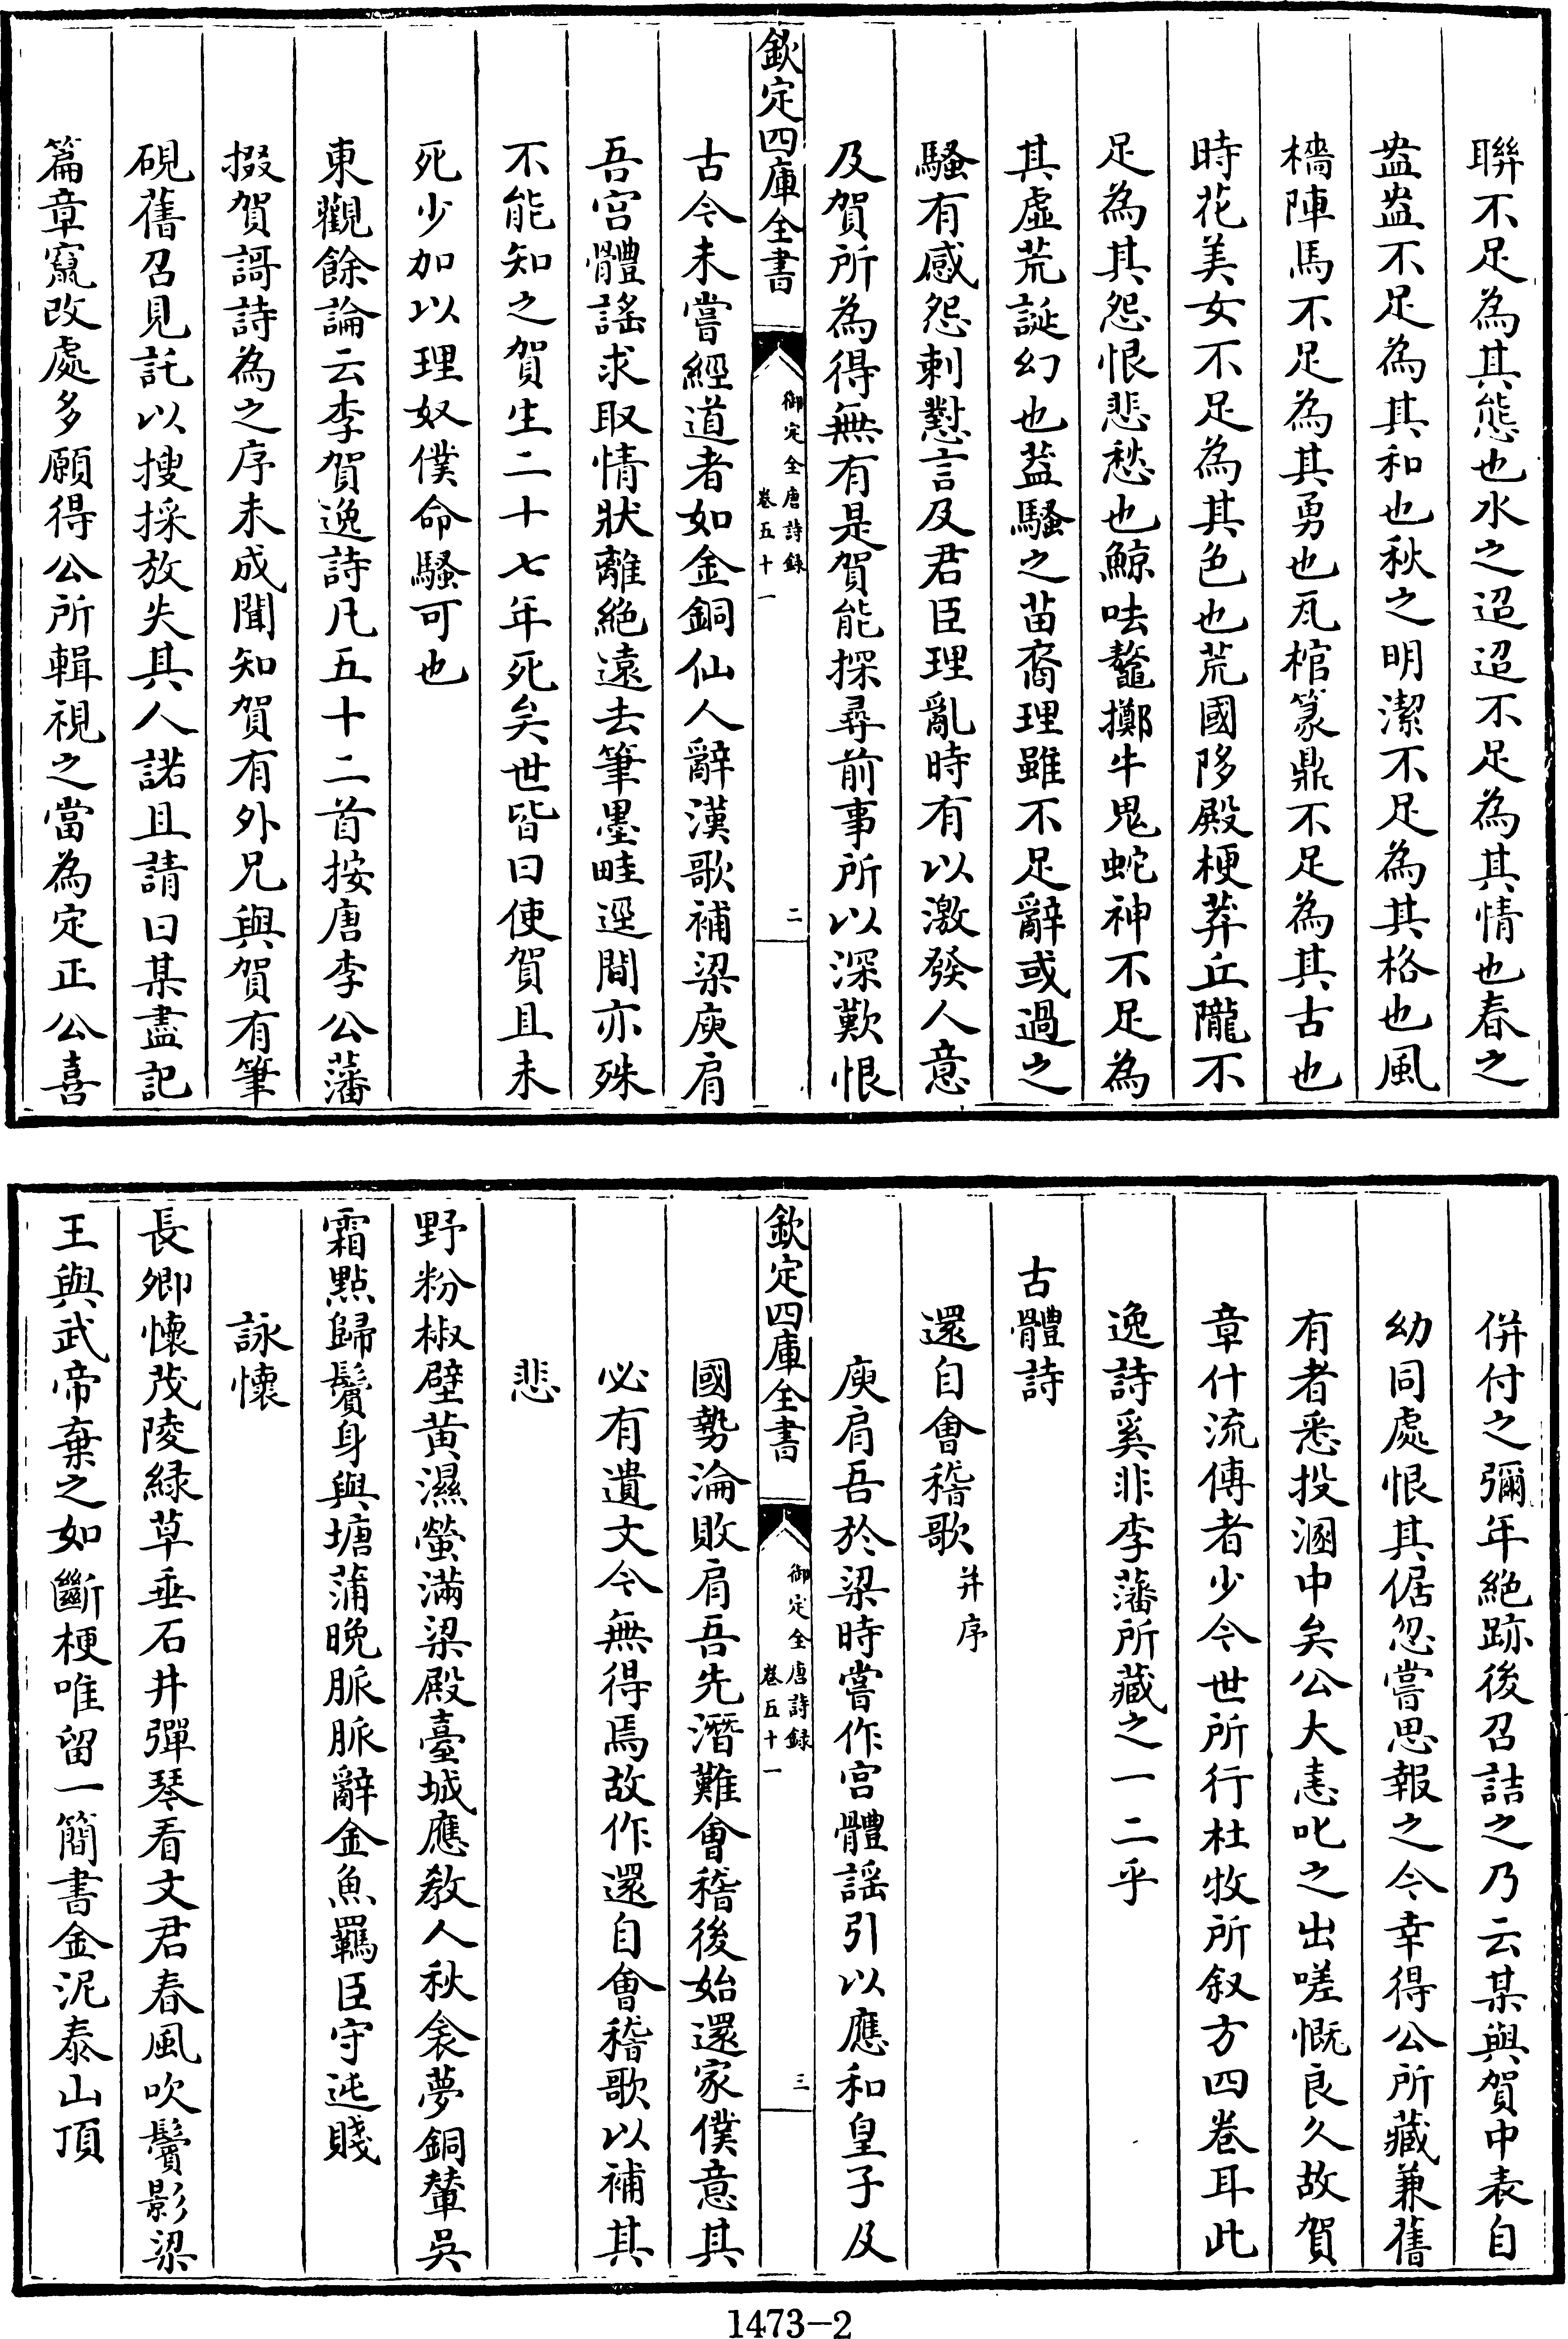 聯不足為其態也水之迢迢不足為其情也春之
盎盎不足為其和也秋之明潔不足為其格也風
檣陣馬不足為其勇也瓦棺篆鼎不足為其古也
時花美女不足為其色也荒國陊殿梗莽丘隴不
足為其怨恨悲愁也鯨呿鼇擲牛鬼蛇神不足為
其虛荒誕幻也葢騷之苗裔理雖不足辭或過之
騷有感怨刺懟言及君臣理亂時有以激發人意
及賀所為得無有是賀能探尋前事所以深歎恨
欽定四庫全書
御定全唐詩録
卷五十一
二
古今未嘗經道者如金銅仙人辭漢歌補梁庾肩
吾宫體謠求取情狀離絶遠去筆墨畦逕間亦殊
不能知之賀生二十七年死矣世皆曰使賀且未
死少加以理奴僕命騷可也
東觀餘論云李賀逸詩凡五十二首按唐李公藩
掇賀謌詩為之序未成聞知賀有外兄與賀有筆
硯舊召見託以搜採放失其人諾且請曰某盡記
篇章竄改處多願得公所輯視之當為定正公喜
併付之彌年絶跡後召詰之乃云某與賀中表自
幼同處恨其倨忽嘗思報之今幸得公所藏兼舊
有者悉投溷中矣公大恚叱之出嗟慨良久故賀
章什流傳者少今世所行杜牧所叙方四卷耳此
逸詩奚非李藩所藏之一二乎
古體詩
還自會稽歌并序
庾肩吾於梁時嘗作宫體謡引以應和皇子及
欽定四庫全書
御定全唐詩録
卷五十一
三
國勢淪敗肩吾先潛難會稽後始還家僕意其
必有遺文今無得焉故作還自會稽歌以補其
悲
野粉椒壁黄濕螢滿梁殿臺城應教人秋衾夢銅輦吳
霜點歸鬢身與塘蒲晩脈脈辭金魚羈臣守迍賤
詠懷
長卿懷茂陵緑草垂石井彈琴看文君春風吹鬢影梁
王與武帝棄之如斷梗唯留一簡書金泥泰山頂
1473-2